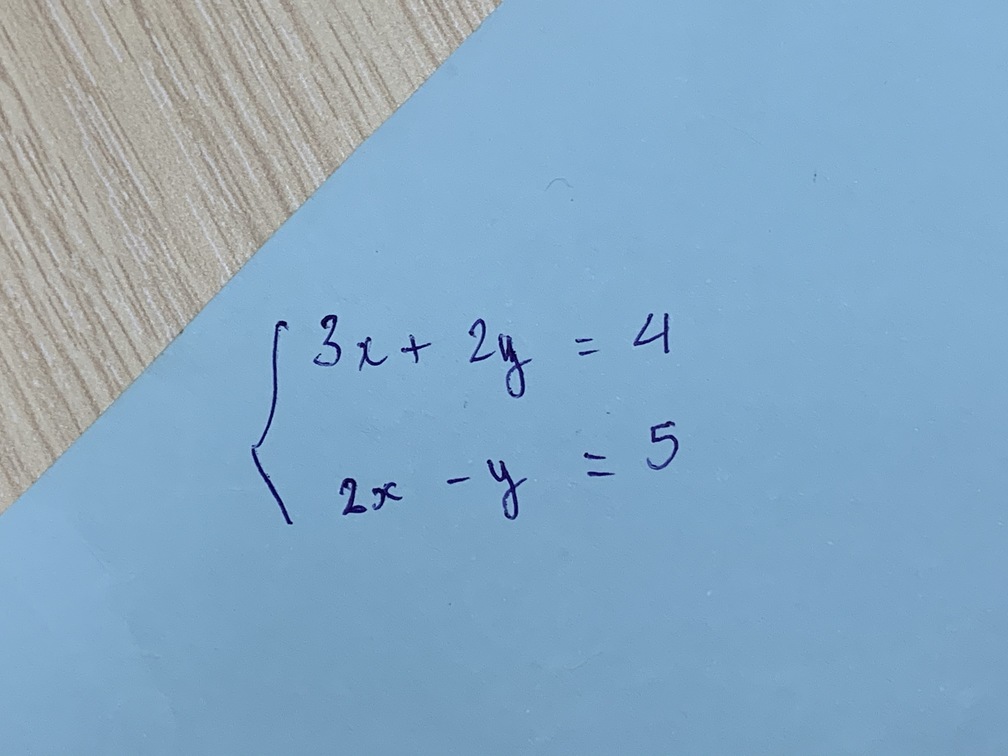 3x + 2y = 4
2x - y = 5